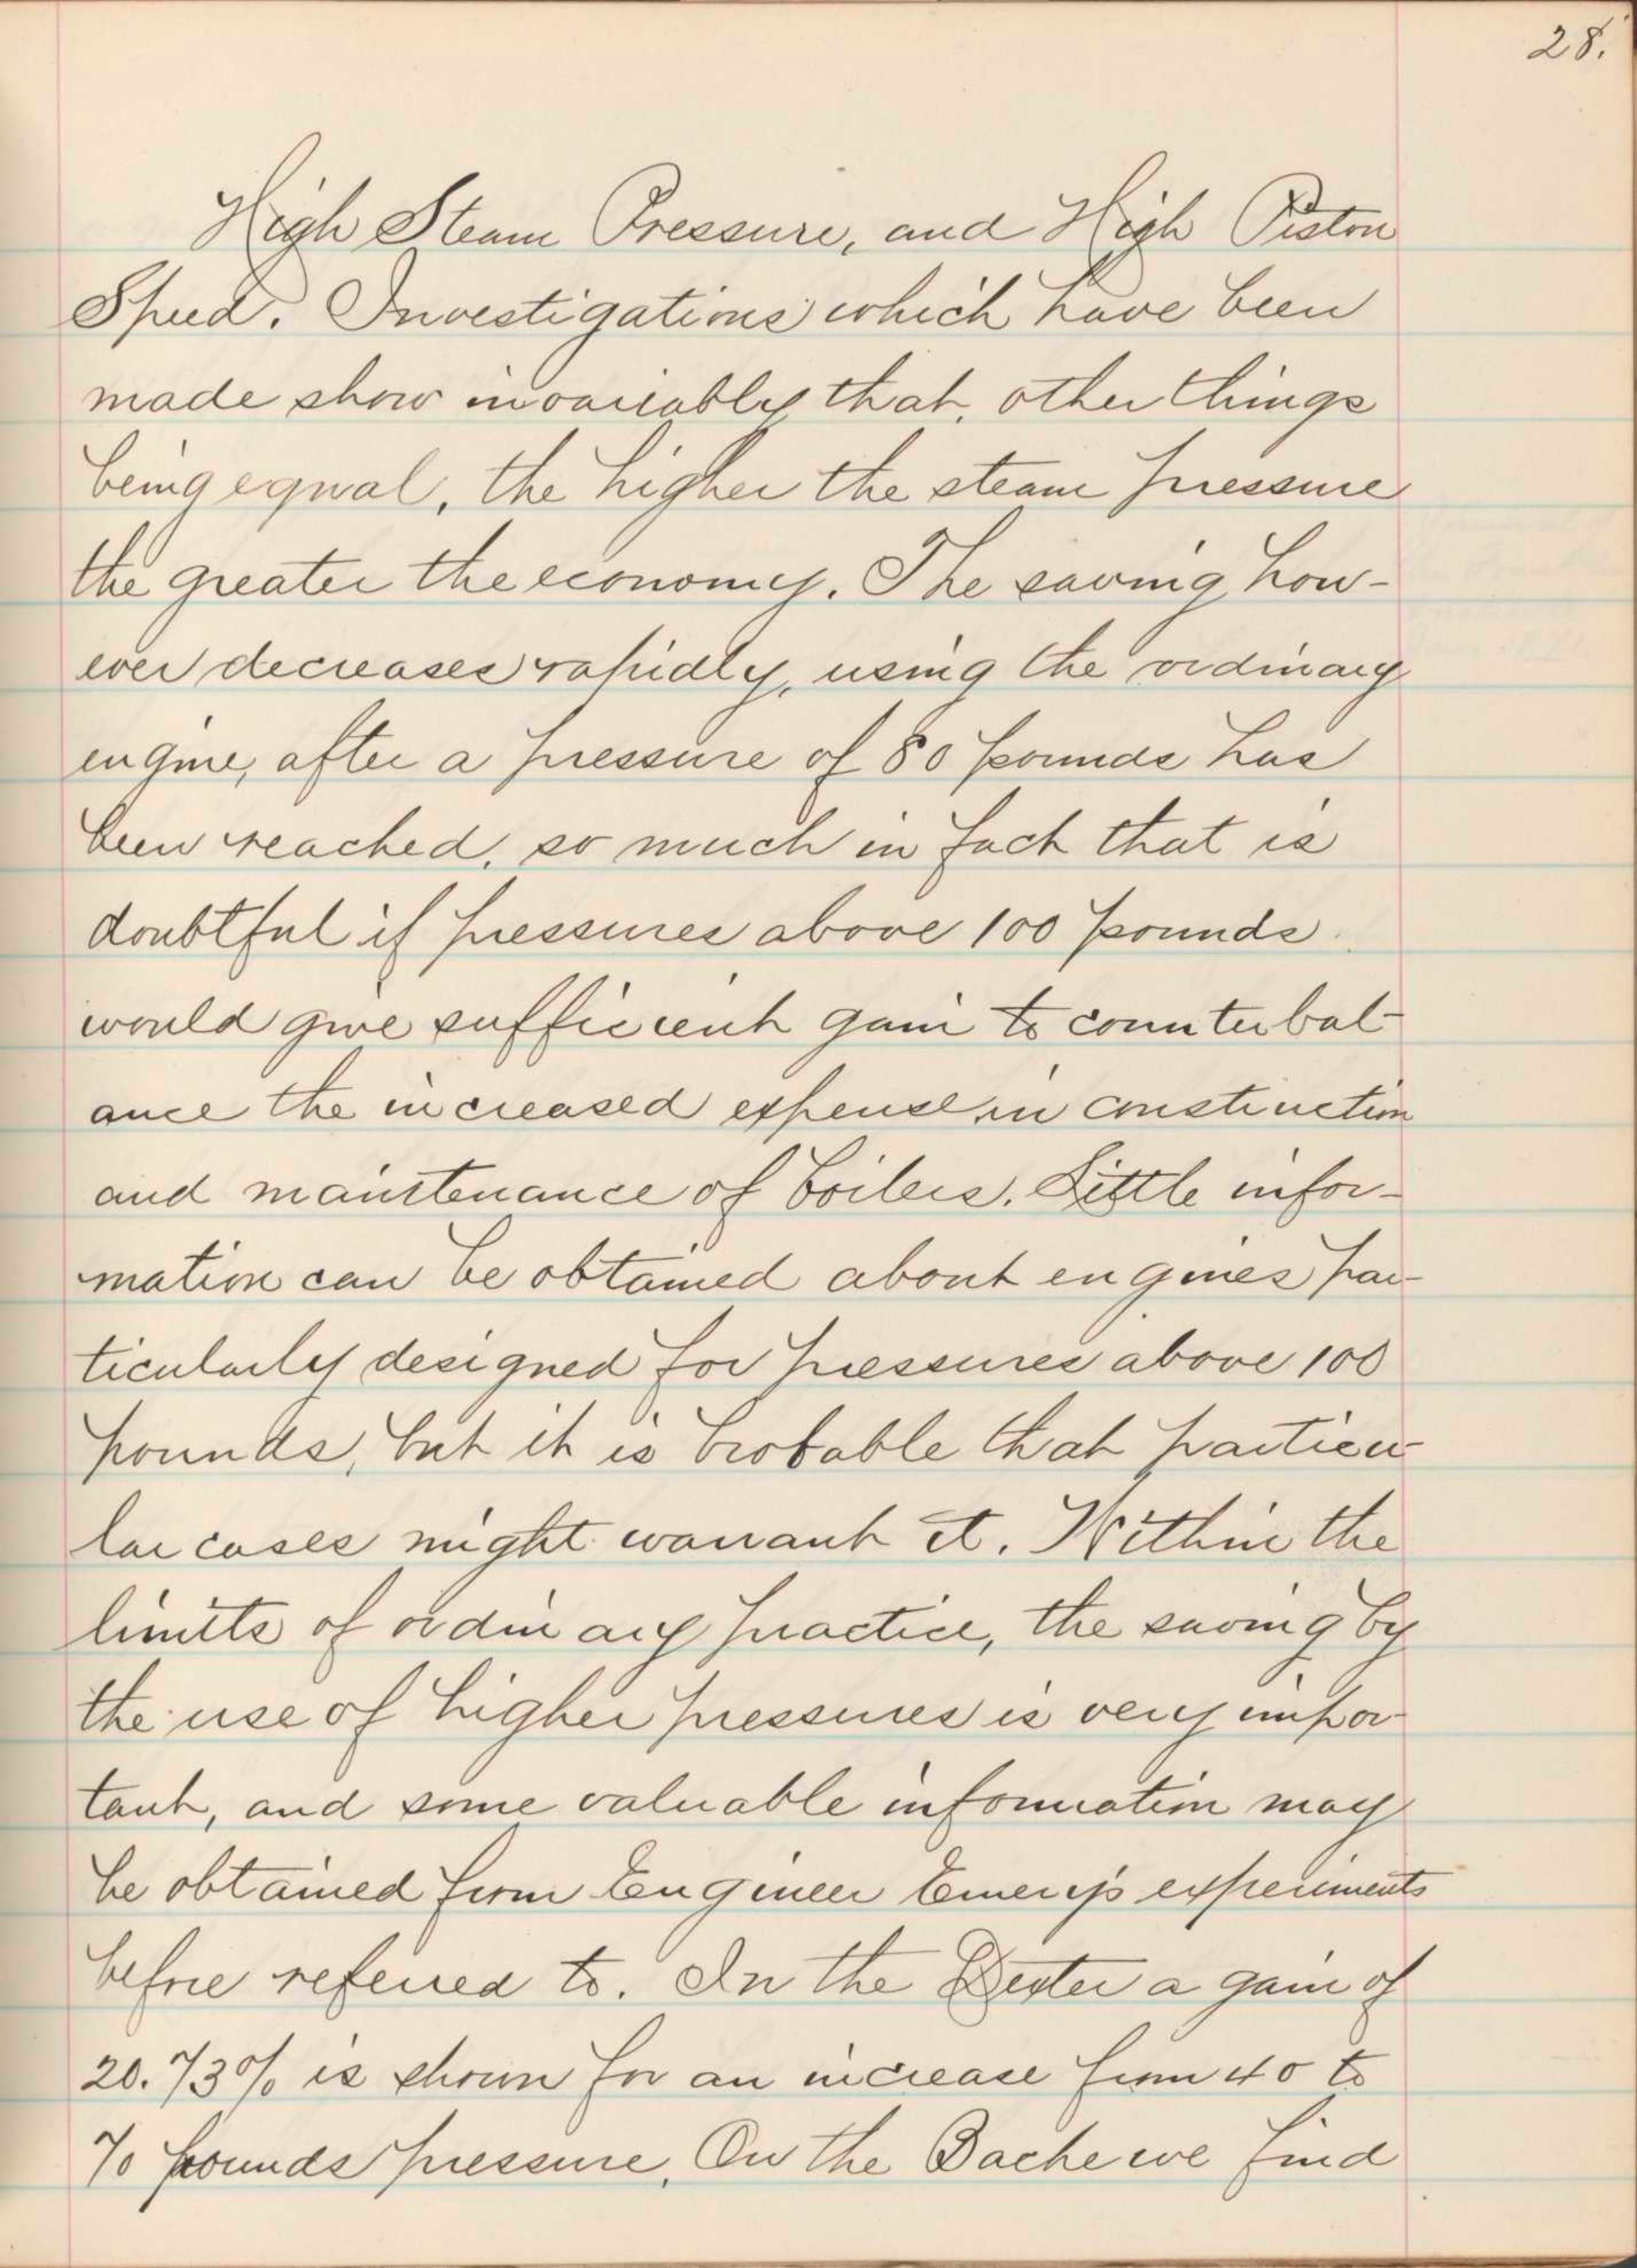 28.
High Steam Pressure, and High Piston
Speed. Investigations which have been
made show invariably that, other things
being equal, the higher the steam pressure
the greater the economy. The saving how-
ever decreases rapidly, using the ordinary
engine, after a pressure of 80 pounds has
been reached, so much in fact that is
doubtful if pressures above 100 pounds
would give sufficient gain to counterbal-
ance the increased expense in construction
and maintenance of boilers. Little infor-
mation can be obtained about engines par-
ticularly designed for pressures above 100
pounds, but it is probable that particu-
lar cases might warrant it. Within the
limits of ordinary practice, the saving by
the use of higher pressures is very impor-
tant, and some valuable information may
be obtained from Engineer Emery's experiments
before referred to. In the Dexter a gain of
20.73% is shown for an increase from 40 to
70 pounds pressure. On the Bache we find